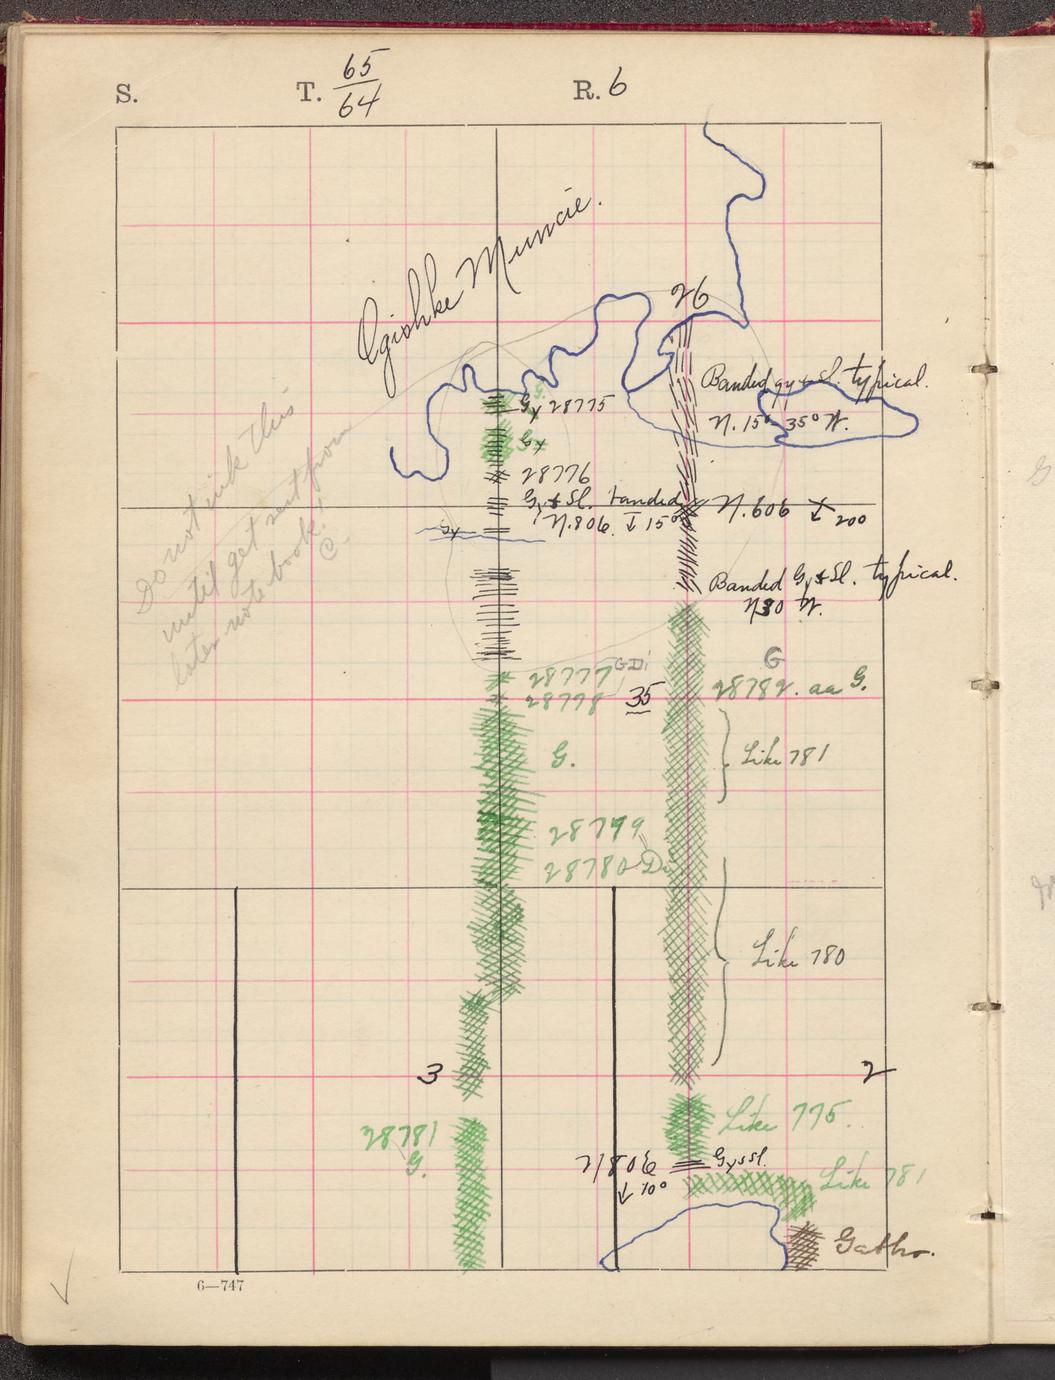 S. T. 65/64 R. 6
Ogishke Muncie.
26
Banded gy & Sl. typical.
N. 15° 35° W.
Gy 28775
Gy
28776
Gy & Sl. banded
N. 80 E. ↓ 15°
N. 60 E ↓ 20°
Gy
Do not ink this
until get sent from
later note book!
C-
Banded Gy & Sl. typical.
N 30 W.
28777 G Di
28778
35
G
28782. aa G.
G.
Like 781
28779
28780 Di
Like 780
3
2
28781
G.
Like 775.
N 80 E Gy & sl.
↓ 10°
Like 781
Gabbro.
6—747